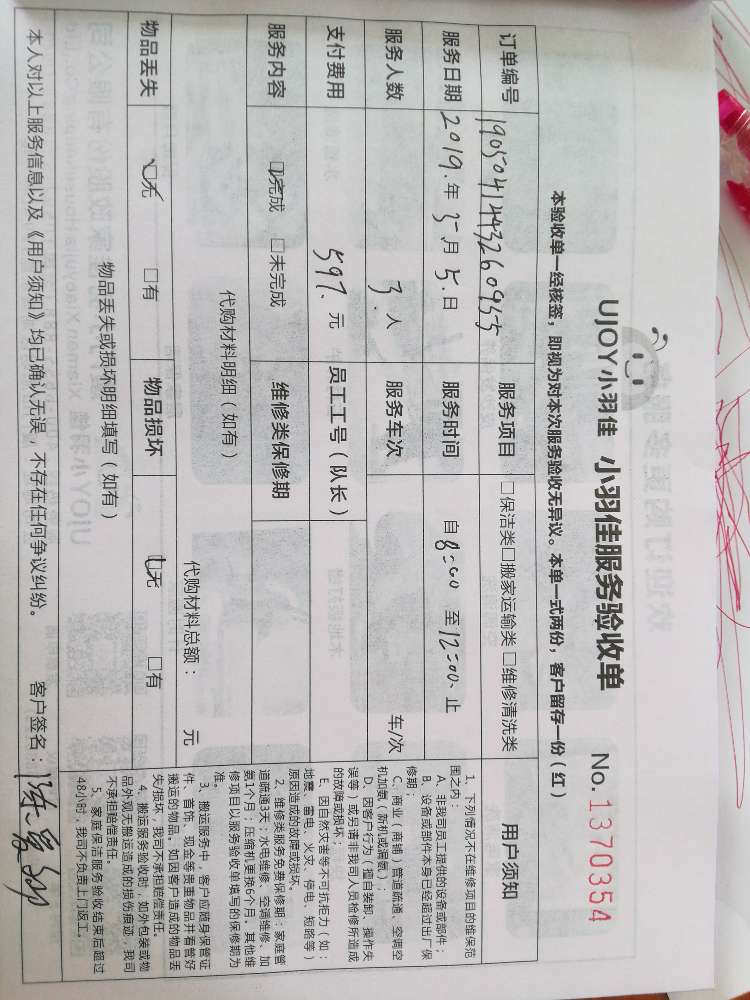 UJOY小羽佳 小羽佳服务验收单 No.1370354
本验收单一经核签，即视为对本次服务验收无异议。本单一式两份，客户留存一份（红）
订单编号 190504144326093 服务项目 □保洁类□搬家运输类□维修清洗类
服务日期 2019.年5月5.日 服务时间 自8:00至12:00止
服务人数 3.人 服务车次 车/次
支付费用 597.元 员工工号（队长）
服务内容 □完成 □未完成 维修类保修期
代购材料明细（如有）
代购材料总额： 元
物品丢失 □无 □有 物品损坏 □无 □有
物品丢失或损坏明细填写（如有）
本人对以上服务信息以及《用户须知》均已确认无误，不存在任何争议纠纷。 客户签名：陈
用户须知
1、下列情况不在维修项目的维保范
围之内：
A、非我司员工提供的设备或部件；
B、设备或部件本身已经超过出厂保
修期；
C、商业（商铺）管道疏通、空调空
机加氨（新机或漏氨）；
D、因客户行为（擅自装卸、操作失
误等）或另请非我司人员检修所造成
的故障或损坏；
E、因自然灾害等不可抗拒力（如：
地震、雷电、火灾、停电、短路等）
原因造成的故障或损坏。
2、维修类服务免费保修期：家庭管
道疏通3天；水电维修、空调维修、加
氨1个月；压缩机更换6个月。其他维
修项目以服务验收单填写的保修期为
准。
3、搬运服务中，客户应随身保管证
件、首饰、现金等贵重物品并看管好
搬运的物品，如因客户造成的物品丢
失/损坏，我司不承担赔偿责任。
4、搬运服务验收时，如外包装或物
品外观无搬运造成的损伤痕迹，我司
不承担赔偿责任。
5、家庭保洁服务验收结束后超过
48小时，我司不负责上门返工。